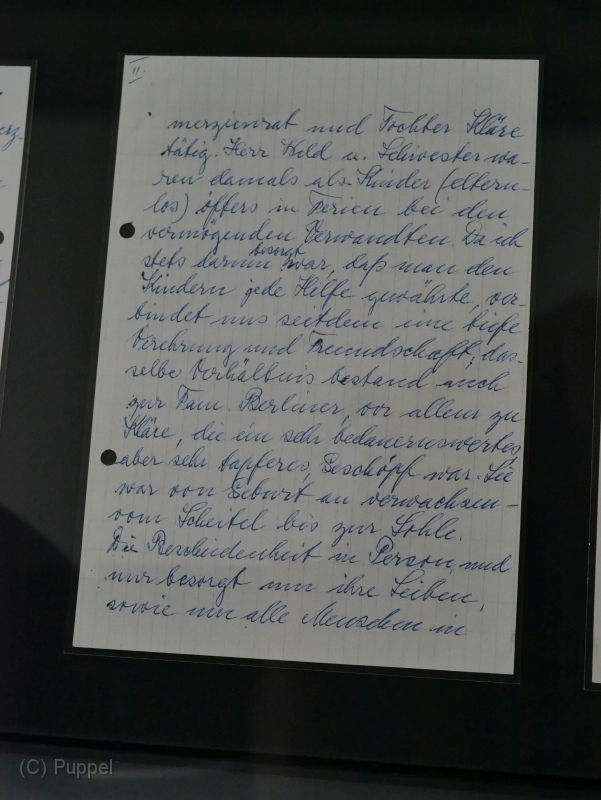 II.
merzienrat und Tochter Kläre
tätig. Herr Kild u. Schwester wa-
ren damals als Kinder (eltern-
los) öffers in Ferien bei den
vermögenden Verwandten. Da ich
stets darum besorgt war, daß man den
Kindern jede Hilfe gewährte, ver-
bindet uns seitdem eine tiefe
Verehrung und Freundschaft; das-
selbe Verhältnis bestand auch
zur Fam. Berliner, vor allem zu
Kläre, die ein sehr bedauernswertes
aber sehr tapferes, Geschöpf war. Sie
war von Geburt an verwachsen -
vom Scheitel bis zur Sohle.
Die Bescheidenheit in Person und
nur besorgt um ihre Lieben,
sowie um alle Menschen in
(C) Puppel